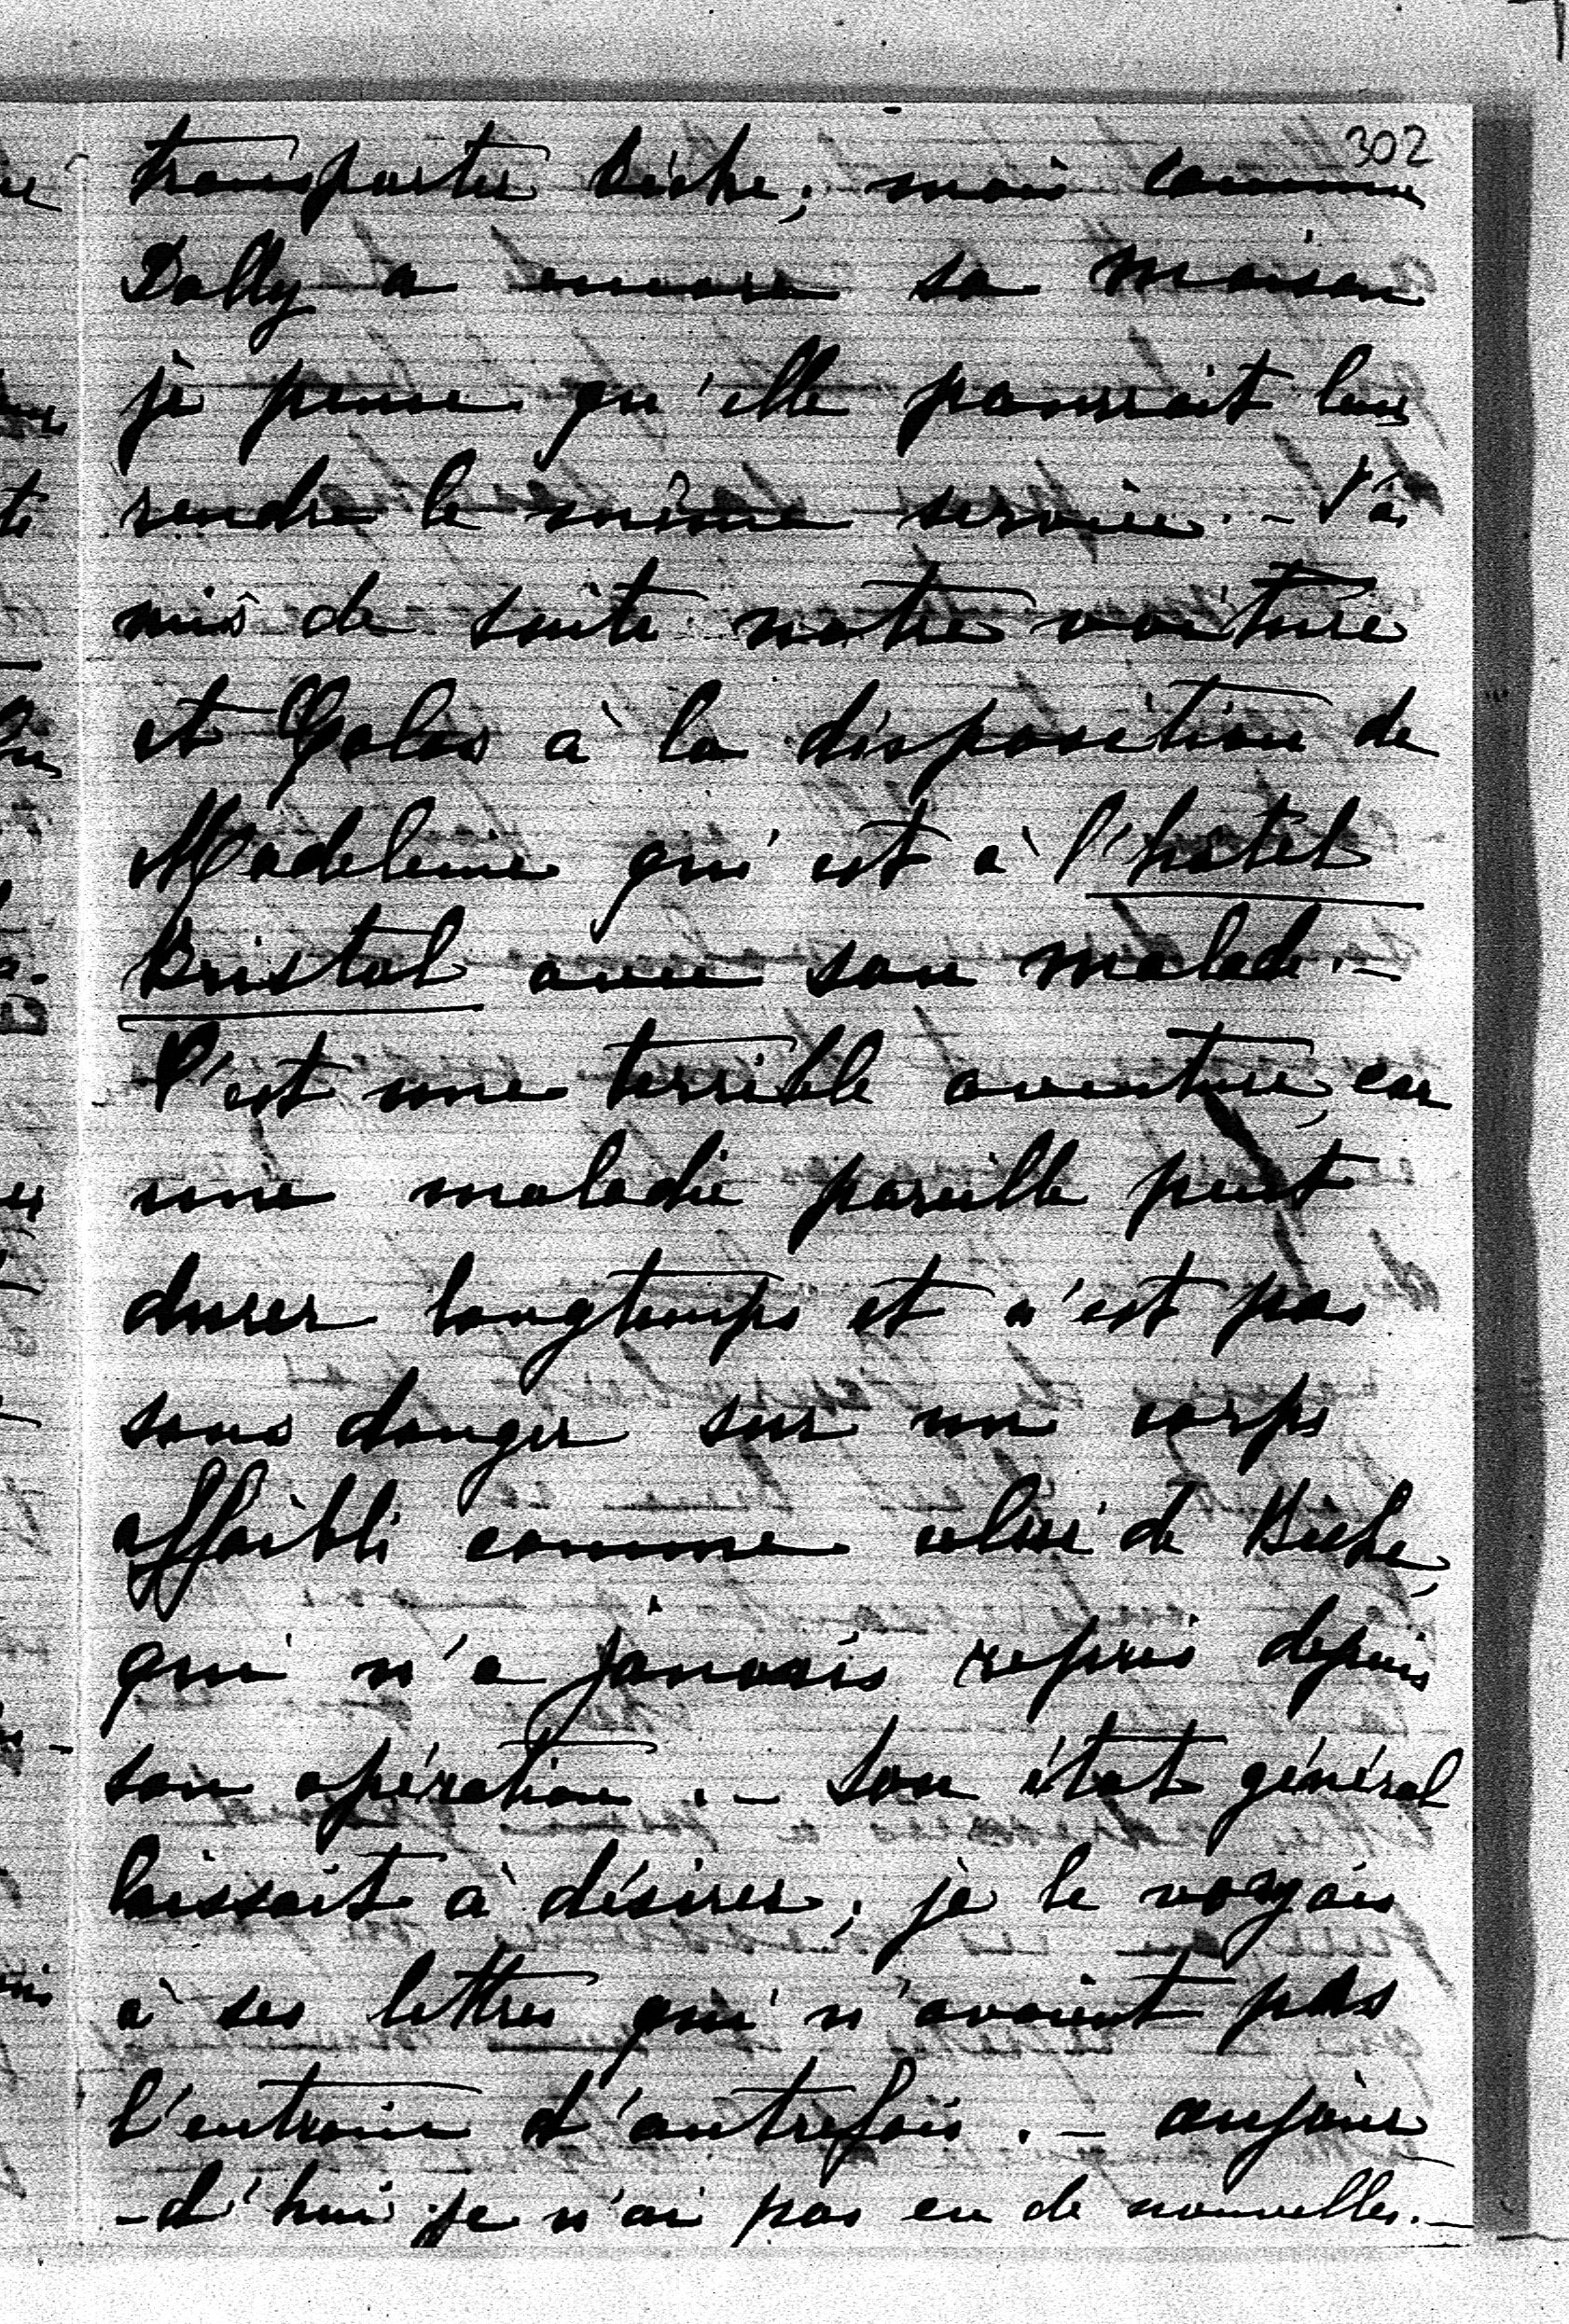 302
transporter Biche; mais comme
Dolly a encore sa maison
je pense qu'elle pourrait leur
rendre le même service. – J'ai
mis de suite notre voiture
et Galas à la disposition de
Madeleine qui est à l'hôtel
Bristol avec son malade. –
C'est une terrible aventure, car
une maladie pareille peut
durer longtemps et n'est pas
sans danger sur un corps
affaibli comme celui de Biche,
qui n'a jamais repris depuis
son opération. – Son état général
laissait à désirer; je le voyais
à ses lettres qui n'avaient pas
l'entrain d'autrefois. – aujour
-d'hui je n'ai pas eu de nouvelles. –